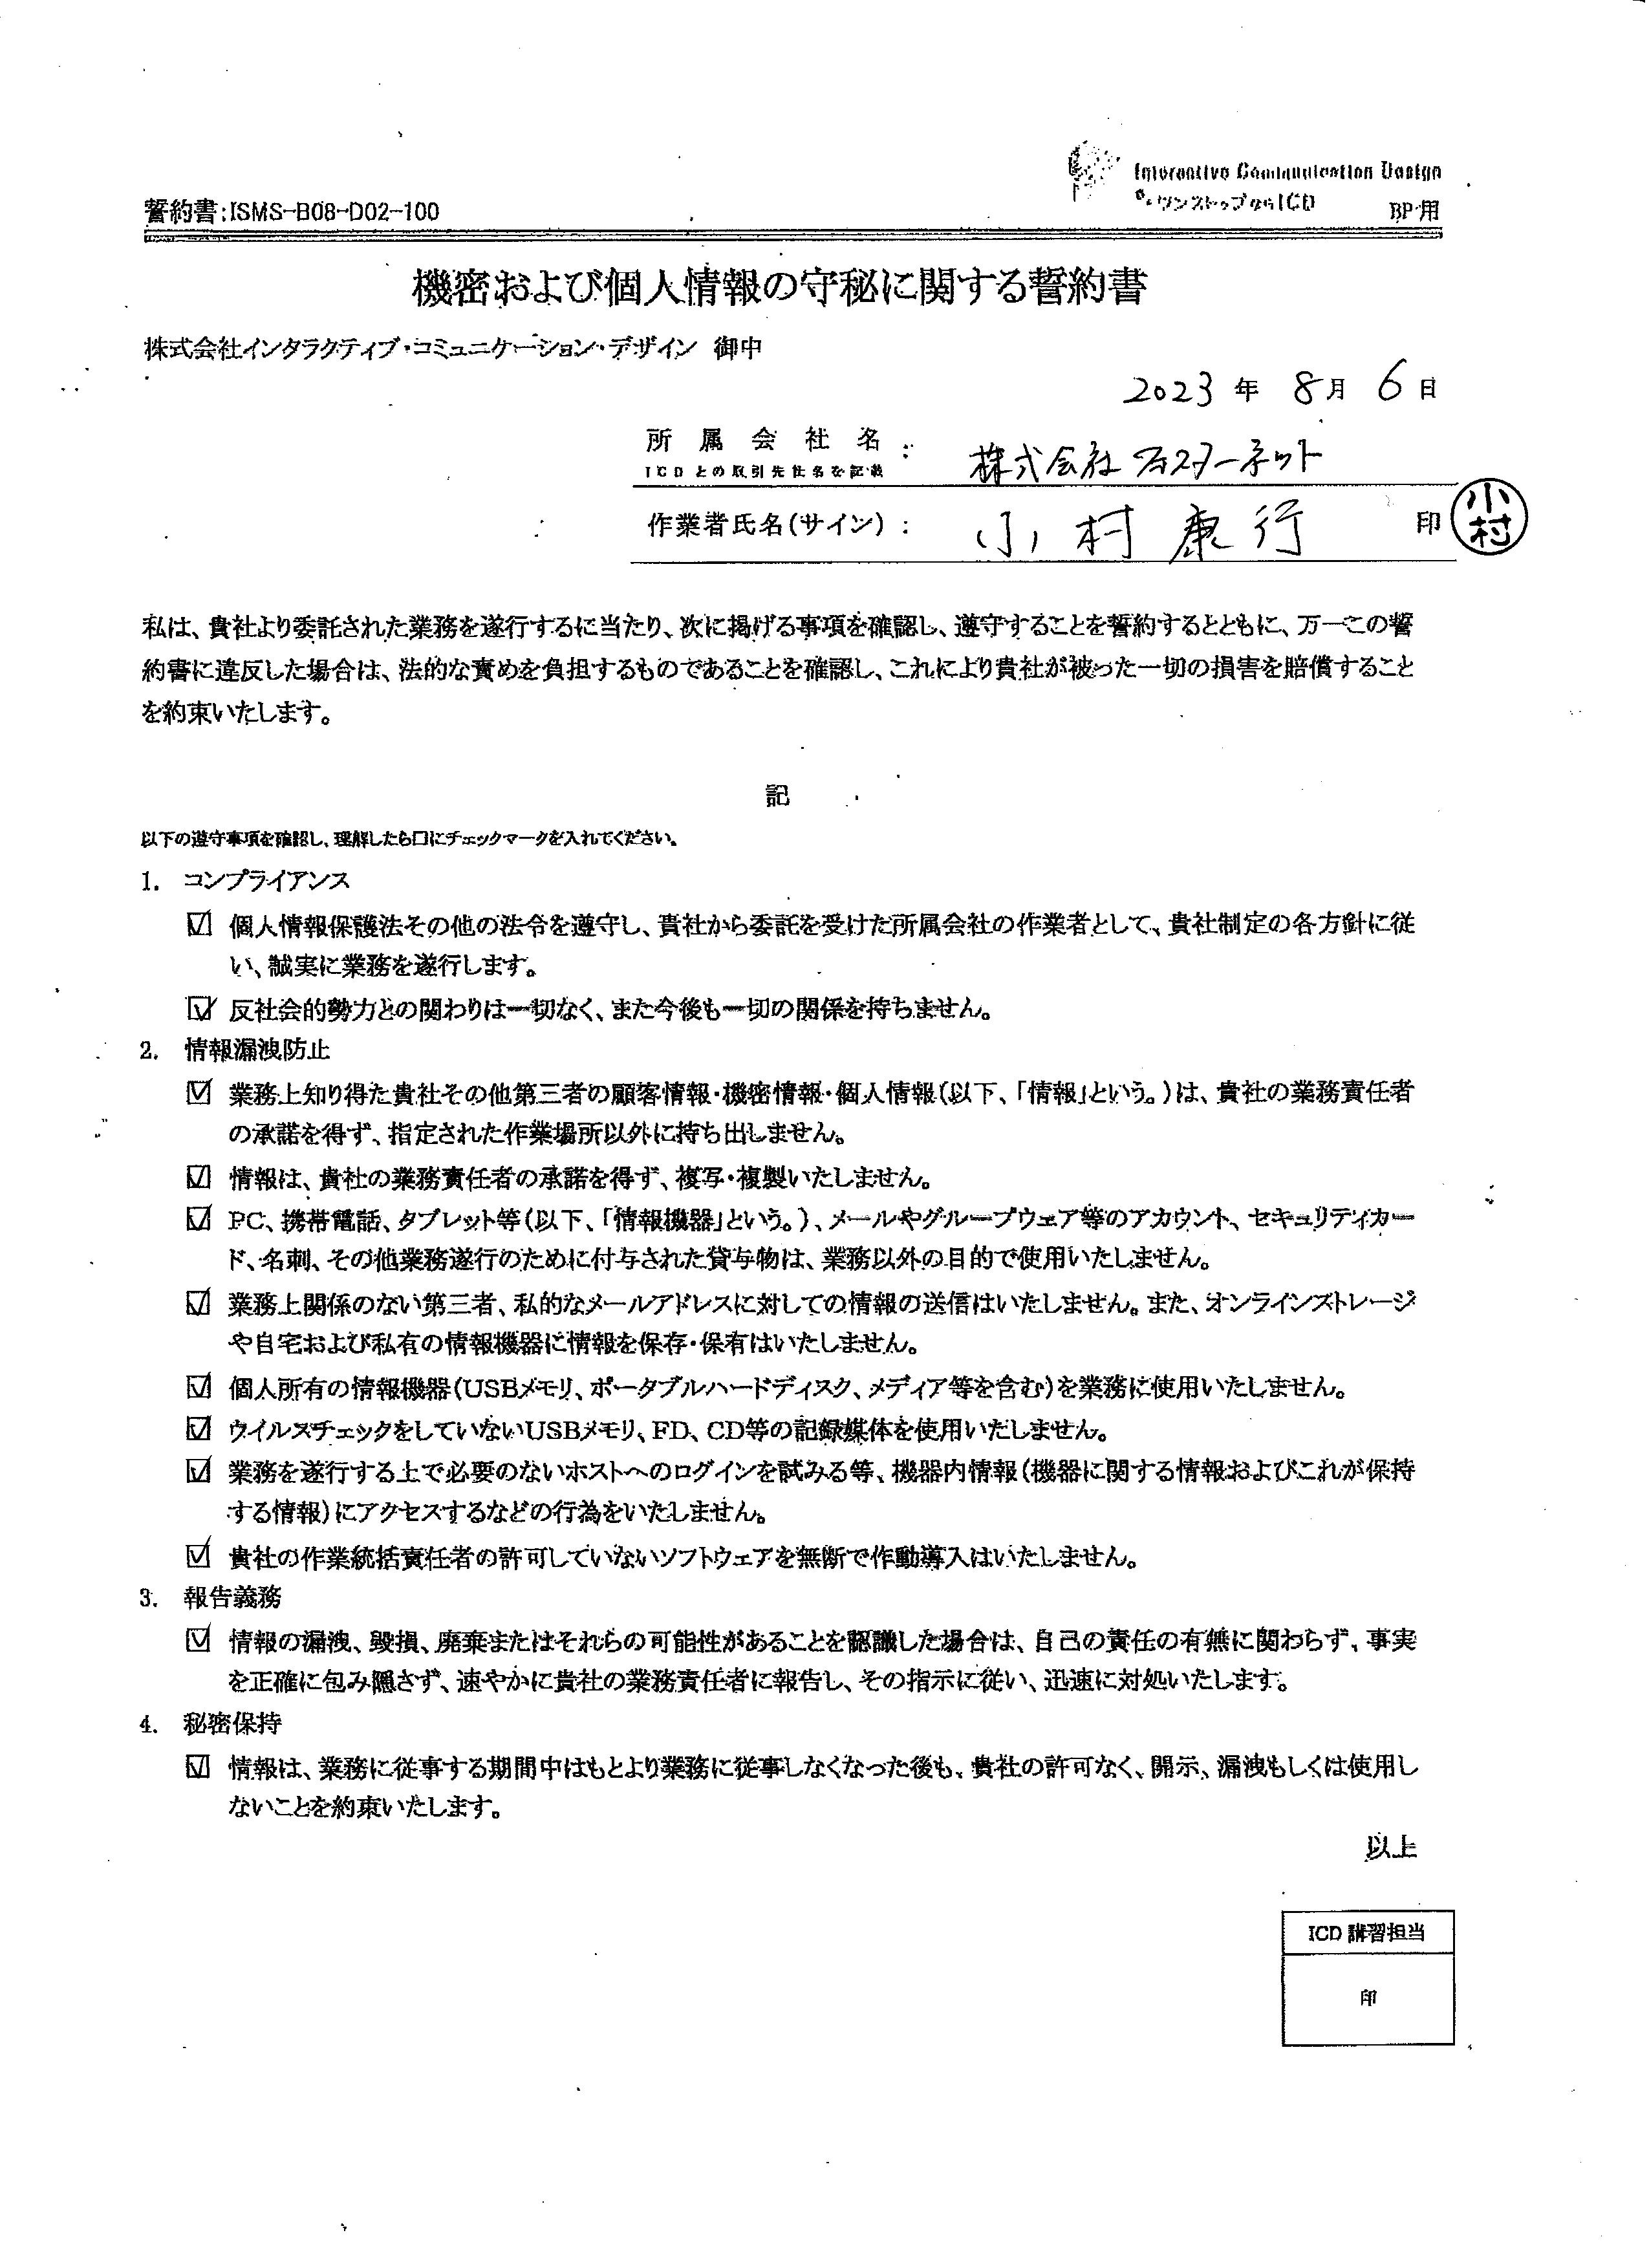 Interactive Communication Design
ワンストップならICD
誓約書:ISMS-B08-D02-100
BP用
機密および個人情報の守秘に関する誓約書
株式会社インタラクティブ・コミュニケーション・デザイン 御中
2023 年 8 月 6 日
所属会社名:
株式会社 フォスターネット
ICDとの取引先社名を記載
作業者氏名(サイン):
小村 康行
印
小村
私は、貴社より委託された業務を遂行するに当たり、次に掲げる事項を確認し、遵守することを誓約するとともに、万一この誓
約書に違反した場合は、法的な責めを負担するものであることを確認し、これにより貴社が被った一切の損害を賠償すること
を約束いたします。
記
以下の遵守事項を確認し、理解したら口にチェックマークを入れてください。
1. コンプライアンス
☑ 個人情報保護法その他の法令を遵守し、貴社から委託を受けた所属会社の作業者として、貴社制定の各方針に従
い、誠実に業務を遂行します。
☑ 反社会的勢力との関わりは一切なく、また今後も一切の関係を持ちません。
2. 情報漏洩防止
☑ 業務上知り得た貴社その他第三者の顧客情報・機密情報・個人情報(以下、「情報」という。)は、貴社の業務責任者
の承諾を得ず、指定された作業場所以外に持ち出しません。
☑ 情報は、貴社の業務責任者の承諾を得ず、複写・複製いたしません。
☑ PC、携帯電話、タブレット等(以下、「情報機器」という。)、メールやグループウェア等のアカウント、セキュリティカー
ド、名刺、その他業務遂行のために付与された貸与物は、業務以外の目的で使用いたしません。
☑ 業務上関係のない第三者、私的なメールアドレスに対しての情報の送信はいたしません。また、オンラインストレージ
や自宅および私有の情報機器に情報を保存・保有はいたしません。
☑ 個人所有の情報機器(USBメモリ、ポータブルハードディスク、メディア等を含む)を業務に使用いたしません。
☑ ウイルスチェックをしていないUSBメモリ、FD、CD等の記録媒体を使用いたしません。
☑ 業務を遂行する上で必要のないホストへのログインを試みる等、機器内情報(機器に関する情報およびこれが保持
する情報)にアクセスするなどの行為をいたしません。
☑ 貴社の作業統括責任者の許可していないソフトウェアを無断で作動導入はいたしません。
3. 報告義務
☑ 情報の漏洩、毀損、廃棄またはそれらの可能性があることを認識した場合は、自己の責任の有無に関わらず、事実
を正確に包み隠さず、速やかに貴社の業務責任者に報告し、その指示に従い、迅速に対処いたします。
4. 秘密保持
☑ 情報は、業務に従事する期間中はもとより業務に従事しなくなった後も、貴社の許可なく、開示、漏洩もしくは使用し
ないことを約束いたします。
以上
ICD 講習担当
印